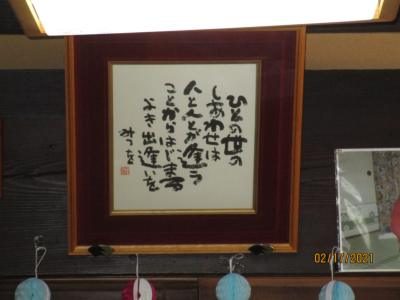 ひとの世の
しあわせは
人と人とが逢う
ことからはじまる
よき出逢いを
みつを
02/17/2021